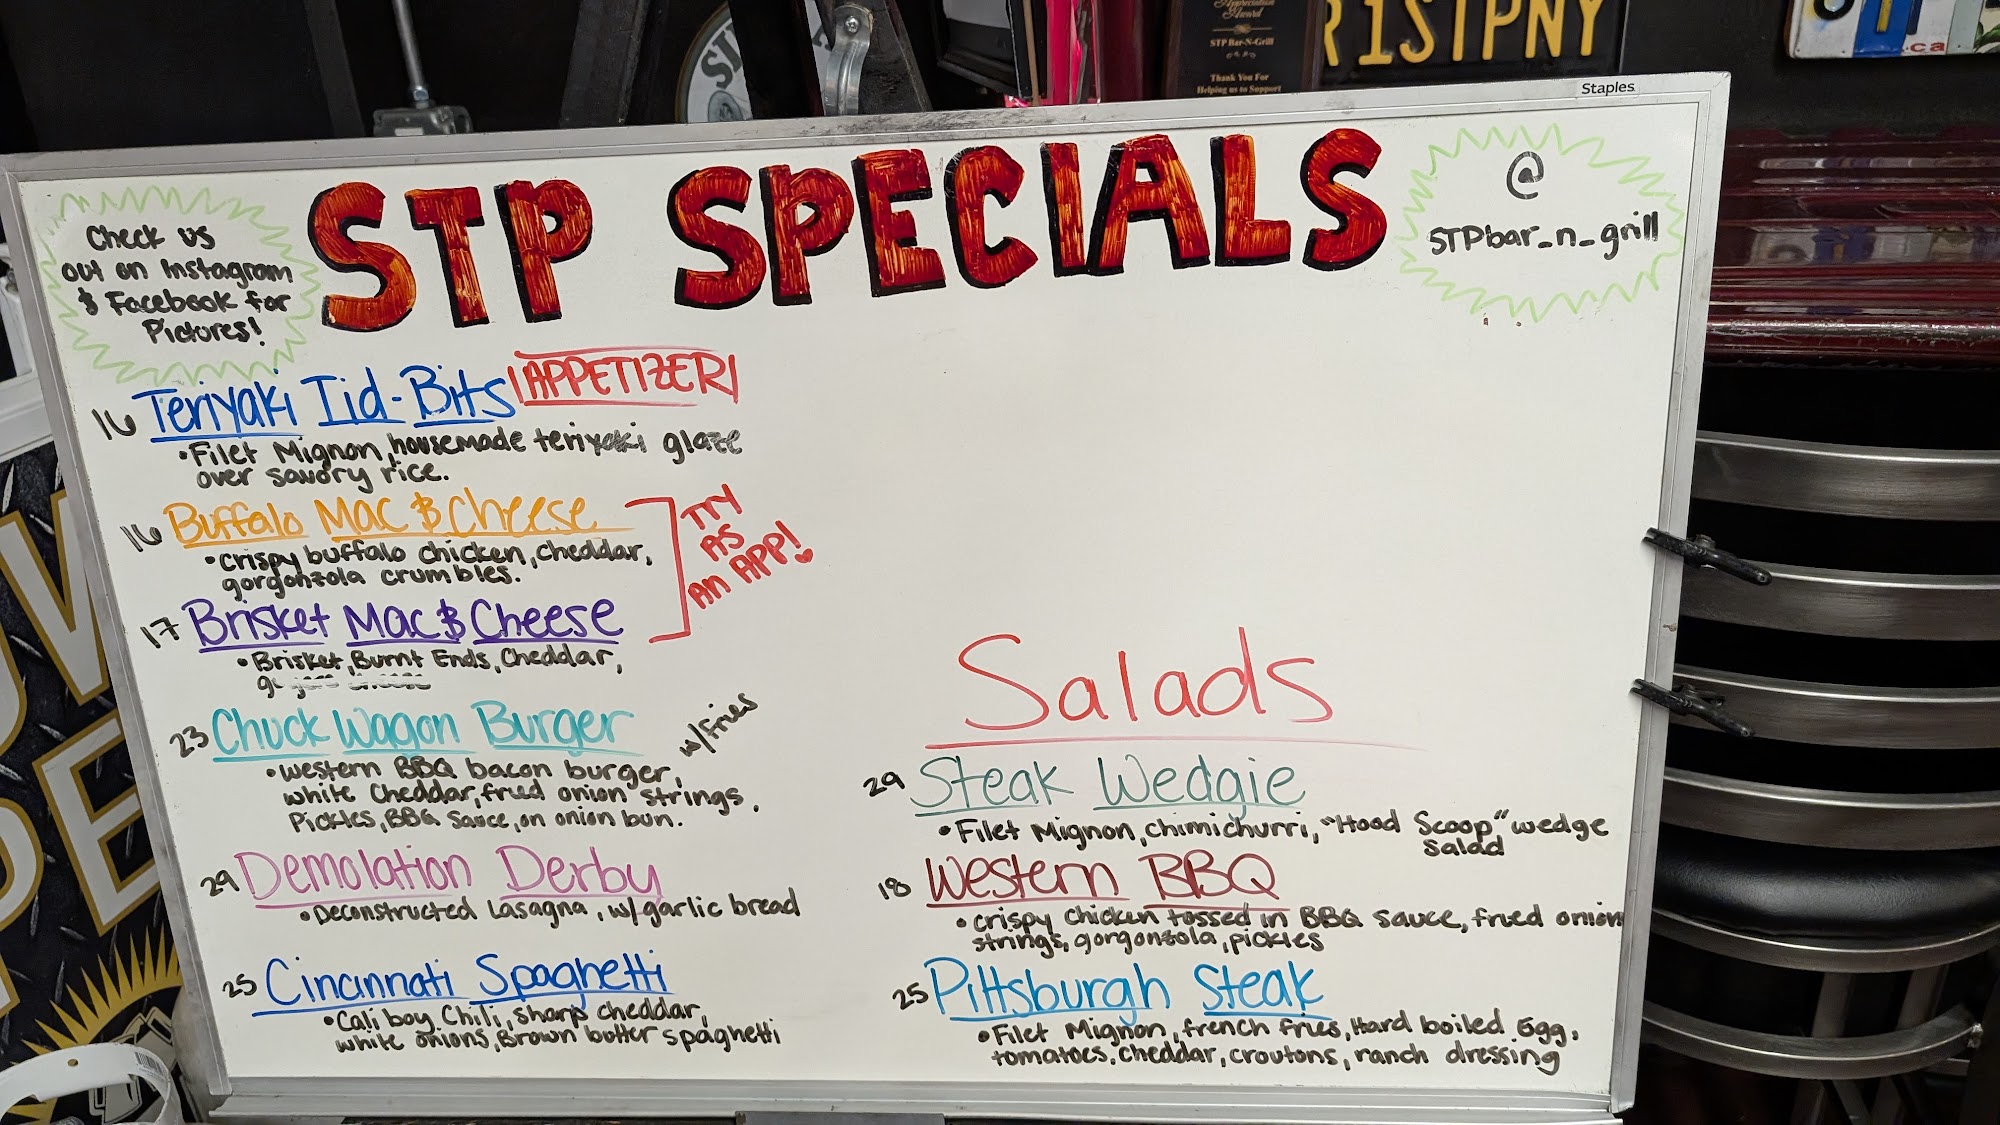 Appreciation
Award
STP Bar-N-Grill
Thank You For
Helping us to Support
R1STPNY
.ca
Staples
STP SPECIALS
Check us
out on Instagram
& Facebook for
Pictures!
@
STPbar_n_grill
16 Teriyaki Tid-Bits |APPETIZER|
• Filet Mignon, housemade teriyaki glaze
over savory rice.
16 Buffalo Mac & Cheese
• Crispy buffalo chicken, cheddar,
gorgonzola crumbles.
17 Brisket Mac & Cheese
• Brisket, Burnt Ends, Cheddar,
TRY
AS
AN APP!
23 Chuck Wagon Burger w/Fries
• Western BBQ bacon burger,
white Cheddar, fried onion strings,
Pickles, BBQ Sauce, on onion bun.
29 Demolation Derby
• Deconstructed Lasagna, w/garlic bread
25 Cincinnati Spaghetti
• Cali boy Chili, sharp cheddar,
white onions, Brown butter spaghetti
Salads
29 Steak Wedgie
• Filet Mignon, chimichurri, "Hood Scoop" wedge
Salad
18 Western BBQ
• crispy chicken tossed in BBQ sauce, fried onion
strings, gorgonzola, pickles
25 Pittsburgh Steak
• Filet Mignon, french fries, Hard boiled Egg,
tomatoes, cheddar, croutons, ranch dressing